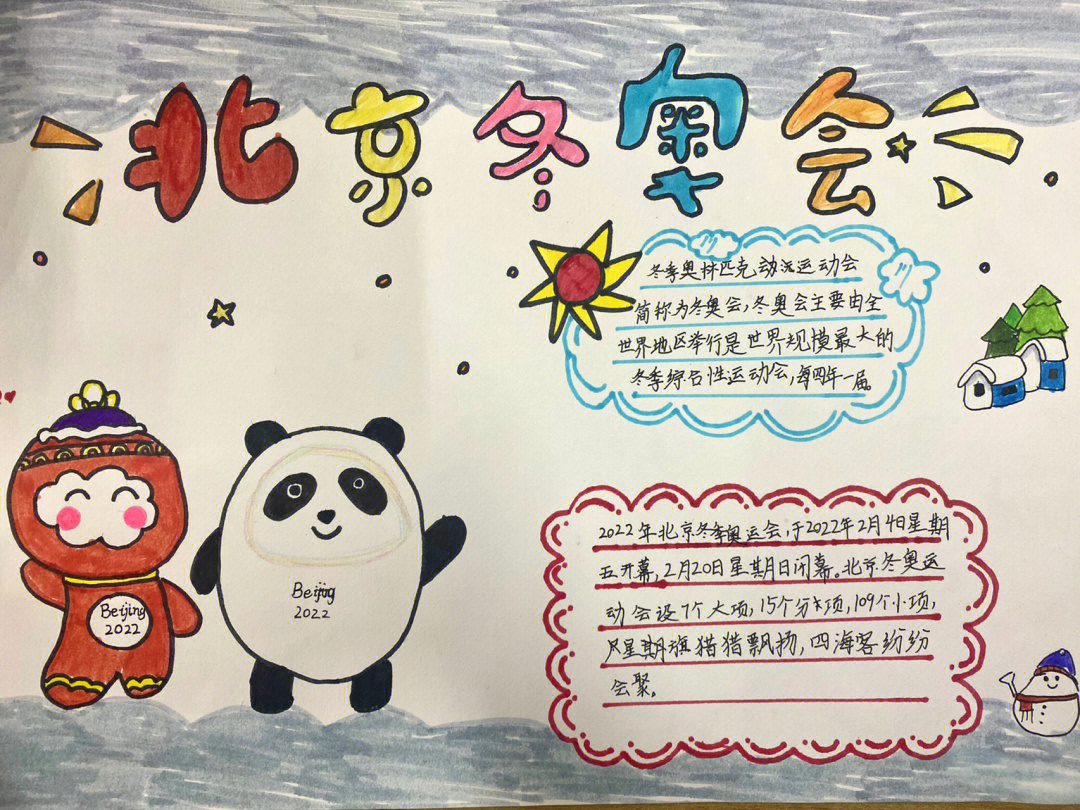 北京冬奥会
冬季奥林匹克动运动会
简称为冬奥会,冬奥会主要由全
世界地区举行是世界规模最大的
冬季综合性运动会,每四年一届。
2022年北京冬季奥运会,于2022年2月4日星期
五开幕,2月20日星期日闭幕。北京冬奥运
动会设7个大项,15个分项,109个小项,
星期旗猎猎飘扬,四海客纷纷
会聚。
Beijing
2022
Beijing
2022